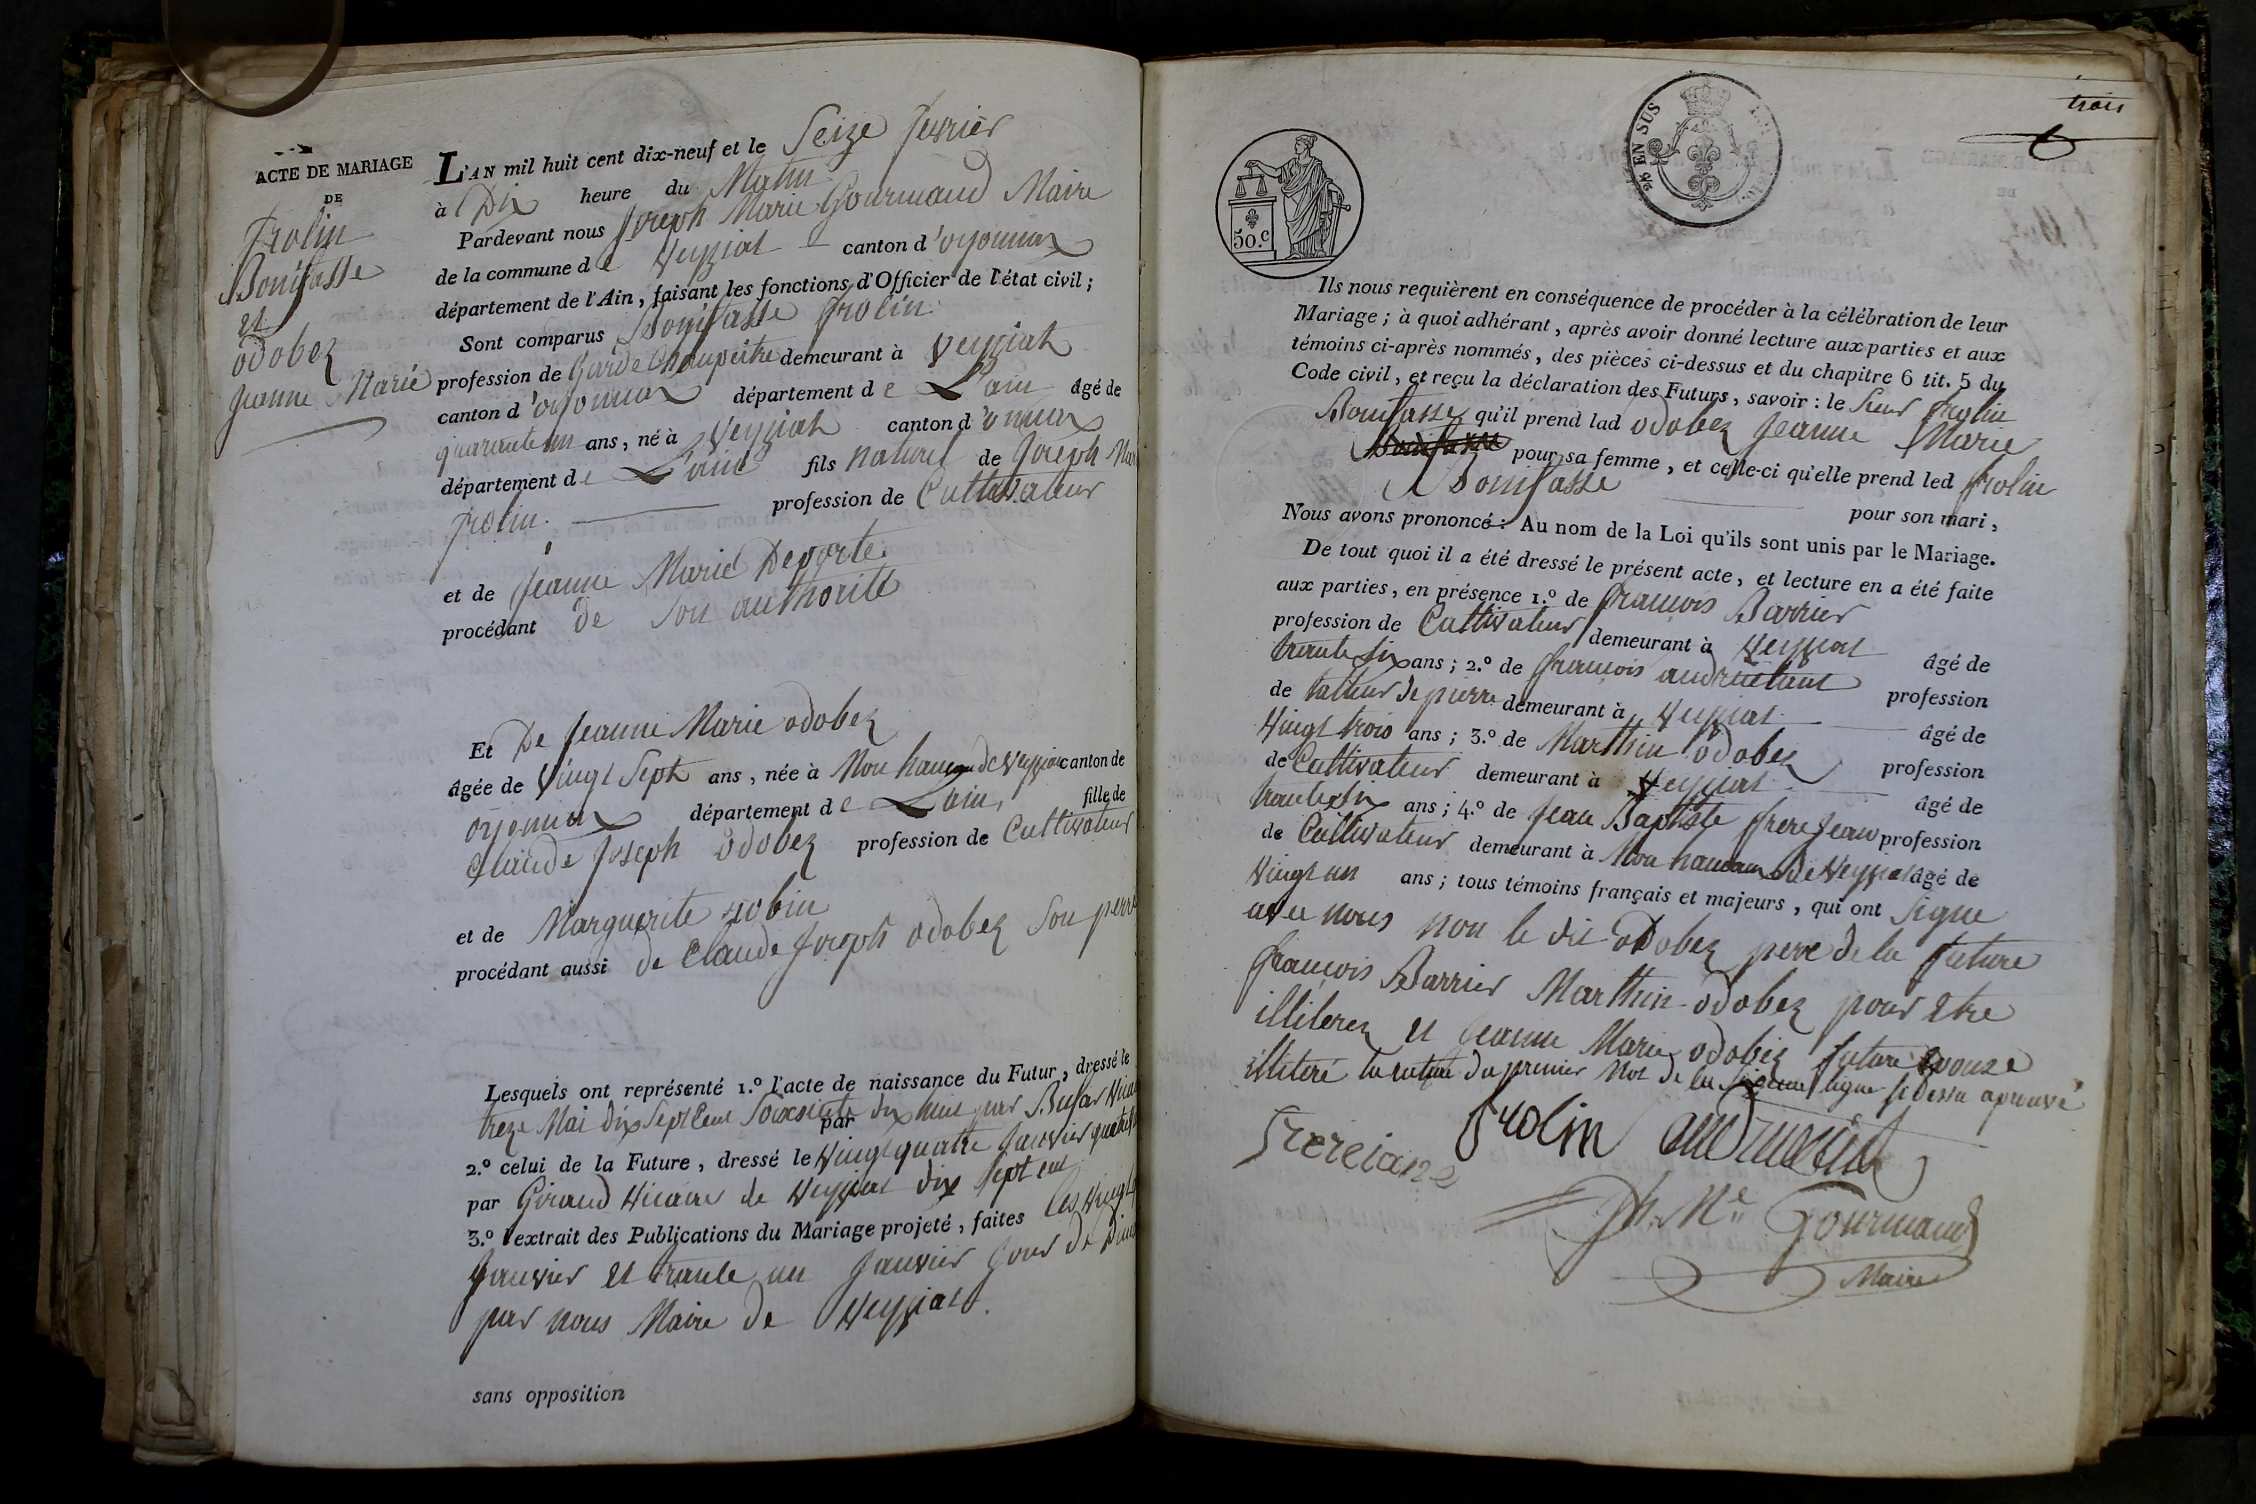 ACTE DE MARIAGE
DE
Frolin
Bonifasse
et
odobez
Jeanne Marie
L'AN mil huit cent dix-neuf et le Seize fevrier
à Dix heure du Matin
Pardevant nous Joseph Marie Gourmand Maire
de la commune de Veyziat canton d'oyonnax
département de l'Ain, faisant les fonctions d'Officier de l'état civil;
Sont comparus Bonifasse frolin
profession de Garde Champeitre demeurant à Veyziat
canton d'oyonnax département de L'ain âgé de
quarante un ans, né à Veyziat canton d'onnax
département de L'ain fils naturel de Joseph Mar
frolin. profession de Cultivateur
et de Jeanne Marie Deporte
procédant de son authorité
Et De Jeanne Marie odobez
âgée de vingt Sept ans, née à Mon hancon de Veyziat canton de
oyonnax département de L'ain, fille de
Claude Joseph odobez profession de Cultivateur
et de Marguerite gobin
procédant aussi de Claude Joseph odobez Son perre
Lesquels ont représenté 1.º l'acte de naissance du Futur, dressé le
treze Mai dix Sept Cent Soixsente dix huit par
2.º celui de la Future, dressé le vingt quatre Janvier
par Giraud vicaire de Veyziat dix Sept cent
3.º l'extrait des Publications du Mariage projeté, faites les vingt
Janvier et trante un Janvier Jour de
par nous Maire de Veyziat.
sans opposition
trois
50.c
EN SUS
Ils nous requièrent en conséquence de procéder à la célébration de leur
Mariage; à quoi adhérant, après avoir donné lecture aux parties et aux
témoins ci-après nommés, des pièces ci-dessus et du chapitre 6 tit. 5 du
Code civil, et reçu la déclaration des Futurs, savoir: le Sieur frolin
Bonifasse qu'il prend lad odobez Jeanne Marie
pour sa femme, et celle-ci qu'elle prend led frolin
Bonifasse pour son mari,
Nous avons prononcé: Au nom de la Loi qu'ils sont unis par le Mariage.
De tout quoi il a été dressé le présent acte, et lecture en a été faite
aux parties, en présence 1.º de françois Barrier
profession de Cultivateur demeurant à Veyziat âgé de
trante six ans; 2.º de françois profession
de tallieur de pierre demeurant à Veyziat âgé de
Vingt trois ans; 3.º de Marthin odobez profession
de Cultivateur demeurant à Veyziat âgé de
trante six ans; 4.º de Jean Baptiste frere Jean profession
de Cultivateur demeurant à Mon hancon de Veyziat âgé de
Vingt un ans; tous témoins français et majeurs, qui ont signe
avec nous non le dit odobez pere de la future
françois Barrier Marthin odobez pour etre
illiterez et Jeanne Marie odobez future epouze
illiteré la du premier Mot de la ligne si dessu aprouvé
frolin
frereiane
Jh. Mie Gourmand
Maire